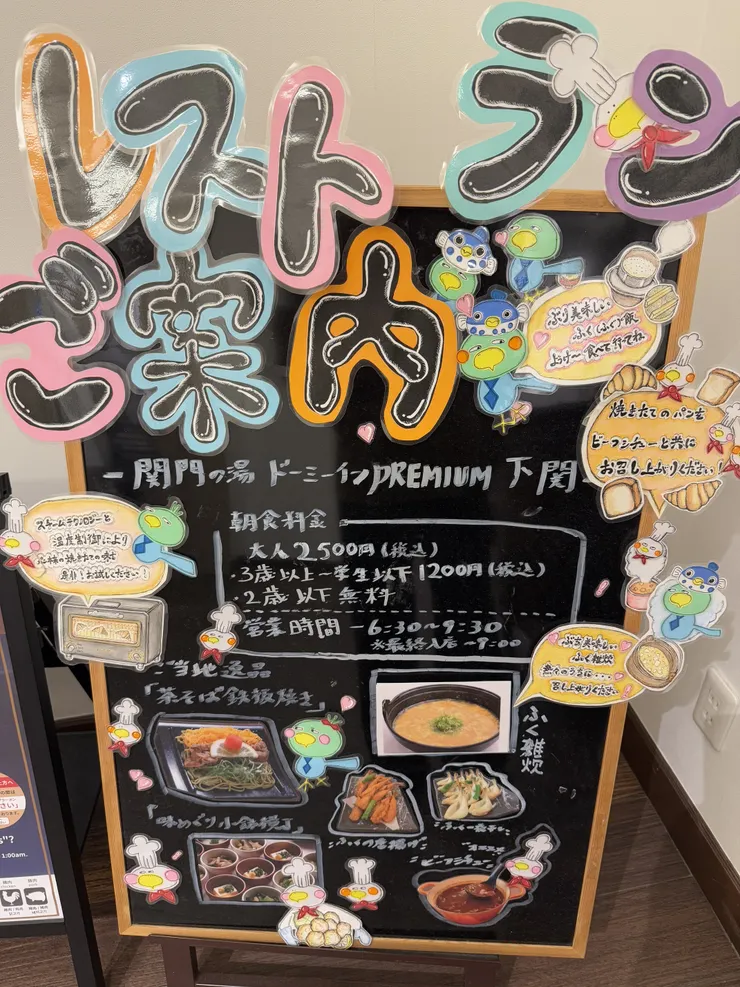 レストラン
ご案内
ぶり美味しい
ふく(ふぐ)飯
よけ〜食べて行ってね
焼きたてのパンを
ビーフシチューと共に
お召し上がりください!
ー関門の湯 ドーミーインPREMIUM 下関ー
スチームテクノロジーと
温度制御により
是非お試しください!
朝食料金
大人2500円(税込)
・3歳以上〜学生以下1200円(税込)
・2歳以下無料
営業時間ー6:30〜9:30
※最終入店〜9:00
ぶち美味しい
ふく雑炊
熱々のうちに...
召し上がりください
ご当地逸品
「茶そば鉄板焼き」
ふく雑炊
「味めぐり小鉢横丁」
ふくの唐揚げ
ビーフシチュー
1:00am.